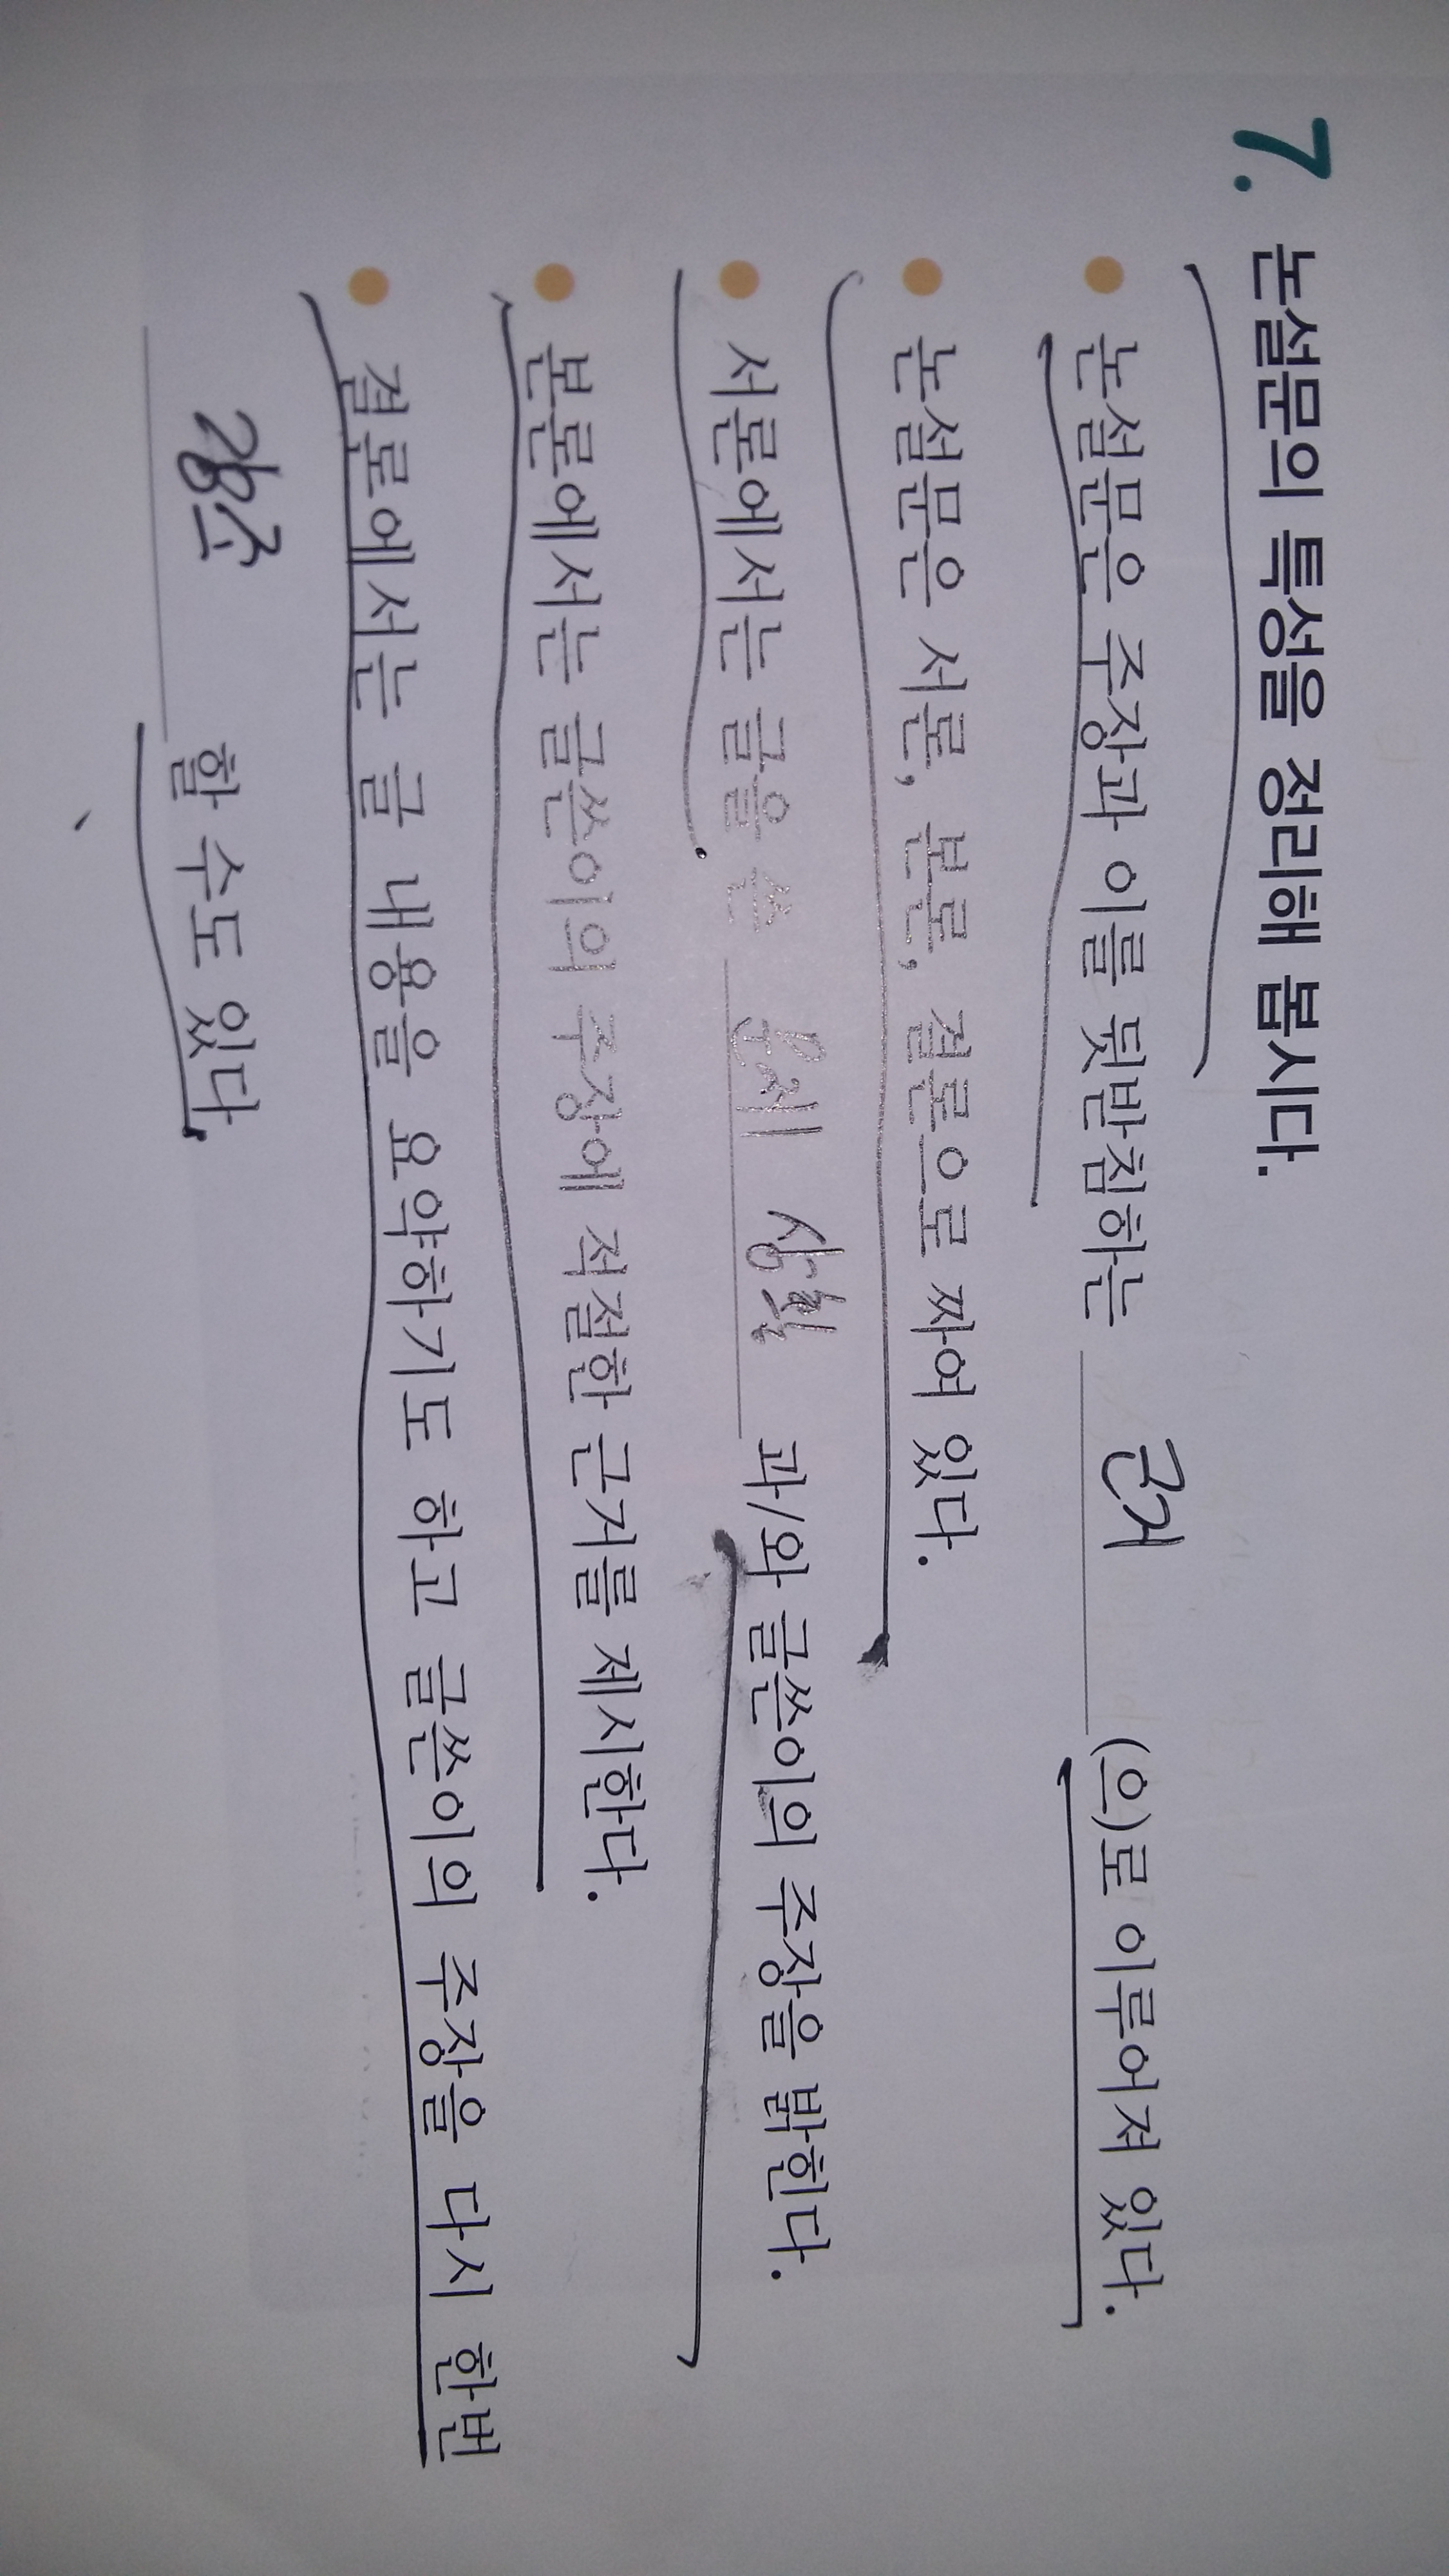 7. 논설문의 특성을 정리해 봅시다.
● 논설문은 주장과 이를 뒷받침하는 근거 (으)로 이루어져 있다.
● 논설문은 서론, 본론, 결론으로 짜여 있다.
● 서론에서는 글을 쓴 문제 상황 과/와 글쓴이의 주장을 밝힌다.
● 본론에서는 글쓴이의 주장에 적절한 근거를 제시한다.
● 결론에서는 글 내용을 요약하기도 하고 글쓴이의 주장을 다시 한번
강조 할 수도 있다.